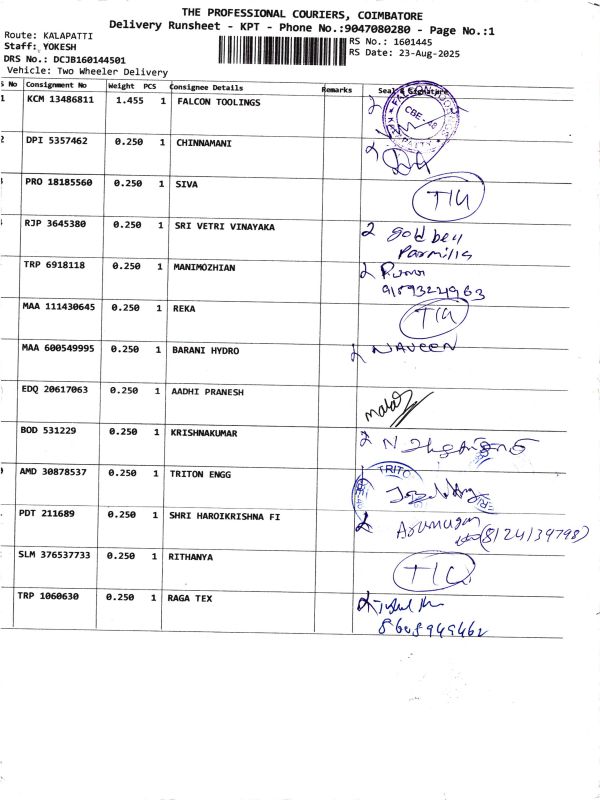 THE PROFESSIONAL COURIERS, COIMBATORE
Delivery Runsheet - KPT - Phone No.:9047080280 - Page No.:1
Route: KALAPATTI
Staff: YOKESH
RS No.: 1601445
DRS No.: DCJB160144501
RS Date: 23-Aug-2025
Vehicle: Two Wheeler Delivery
S No Consignment No Weight PCS Consignee Details Remarks Seal & Signature
1 KCM 13486811 1.455 1 FALCON TOOLINGS CBE-48
2 DPI 5357462 0.250 1 CHINNAMANI
PRO 18185560 0.250 1 SIVA
RJP 3645380 0.250 1 SRI VETRI VINAYAKA
TRP 6918118 0.250 1 MANIMOZHIAN
MAA 111430645 0.250 1 REKA
MAA 600549995 0.250 1 BARANI HYDRO NAVEEN
EDQ 20617063 0.250 1 AADHI PRANESH
BOD 531229 0.250 1 KRISHNAKUMAR
AMD 30878537 0.250 1 TRITON ENGG TRITO
PDT 211689 0.250 1 SHRI HAROIKRISHNA FI Arumugam
(8124139798)
SLM 376537733 0.250 1 RITHANYA
TRP 1060630 0.250 1 RAGA TEX
8608949462